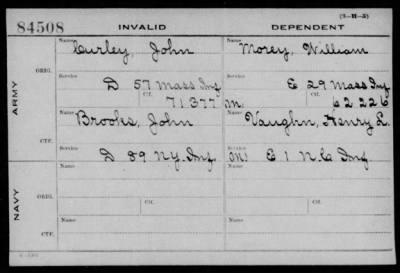 (3-11-5)
84508 INVALID DEPENDENT
Name Curley, John Name Morey, William
ARMY
ORIG. Service D 57 Mass Inf Service E 29 Mass Inf
Ctf. 71377 M. Ctf. 62226
Name Brooks, John Name Vaughn, Henry L.
CTF. Service D 89 N.Y. Inf Service (M) E 1 N.C. Inf
NAVY
Name Name
ORIG. Service Service
Ctf. Ctf.
Name Name
CTF. Service Service